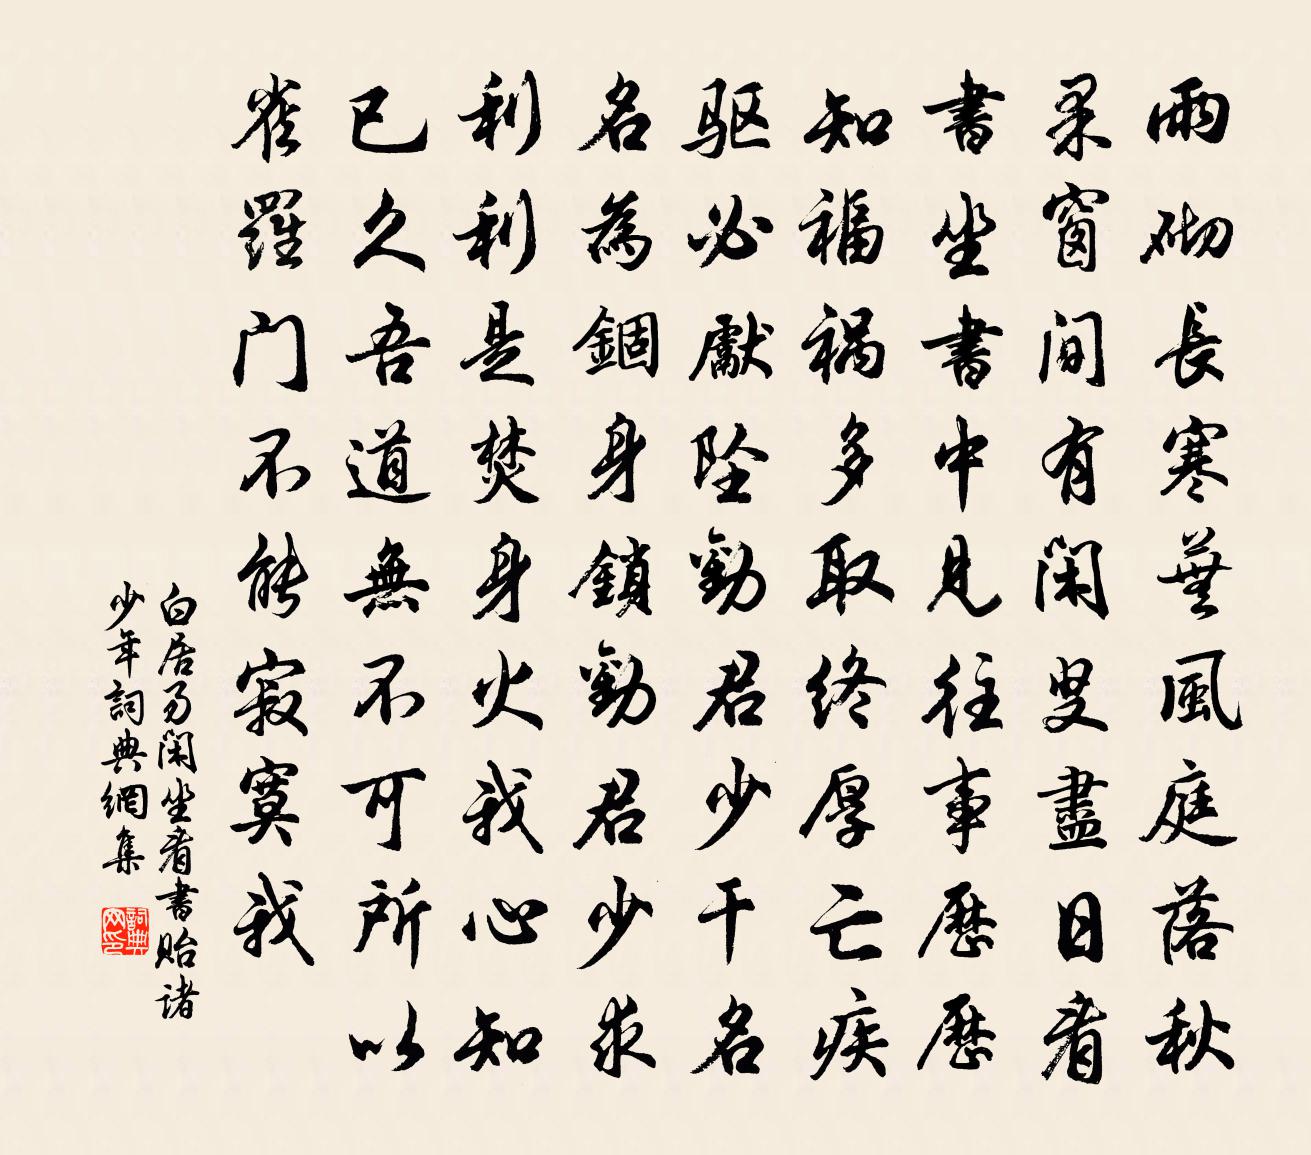 雨砌長寒蕪風庭落秋
果窗間有閑叟盡日看
書坐書中見往事歷歷
知福祸多取終厚亡疾
驱必獻坠勸君少干名
名為錮身鎖勸君少求
利利是焚身火我心知
已久吾道無不可所以
雀羅门不能寂寞我
白居易閑坐看書貽諸
少年詞典網集
詞典
网印